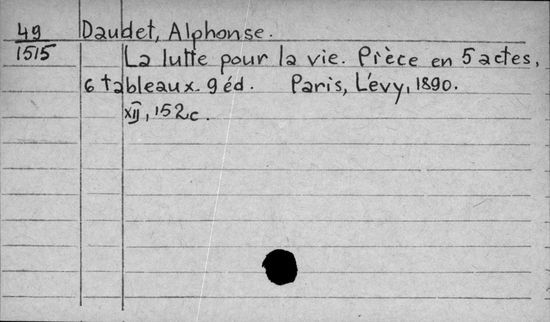 49 Daudet, Alphonse.
1515 La lutte pour la vie. Pièce en 5 actes,
6 tableaux. 9 éd. Paris, Lévy, 1890.
XII, 152c.